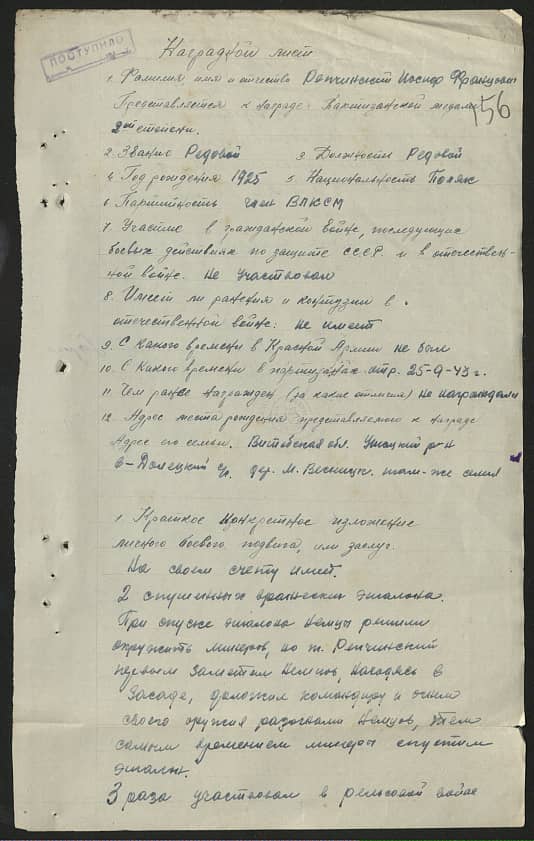 ПОСТУПИЛО
Наградной лист
1. Фамилия имя и отчество Репчинский Иосиф Францович
Представляется к награде Партизанской медали
156
2ой степени.
2. Звание Редовой 3. Должность Редовой
4. Год рождения 1925 5. Национальность Поляк
6. Партийность член ВЛКСМ
7. Участие в гражданской войне, последующих
боевых действиях по защите СССР и в отечествен-
ной войне. Не участвовал
8. Имеет ли ранения и контузии в
отечественной войне: не имеет
9. С какого времени в Красной Армии не был
10. С какого времени в партизанах отр. 25-9-43 г.
11. Чем ранее награжден (за какие отличия) не награждали
12. Адрес места рождения представляемого к награде
Адрес его семьи. Витебская обл. Ушацкий р-н
В-Долецкий с/с. дер. М. там-же семья
1. Краткое конкретное изложение
личного боевого подвига, или заслуг.
На своем счету имеет.
2 спущенных вражеских эшалона.
При спуске эшалона немцы решили
окружить минеров, но т. Репчинский
первым заметил немцов, находясь в
засаде, доложил командиру и огнем
своего оружия разогнали немцов, тем
самым временем минеры спустили
эшалон.
3 раза участвовал в рельсовой войне